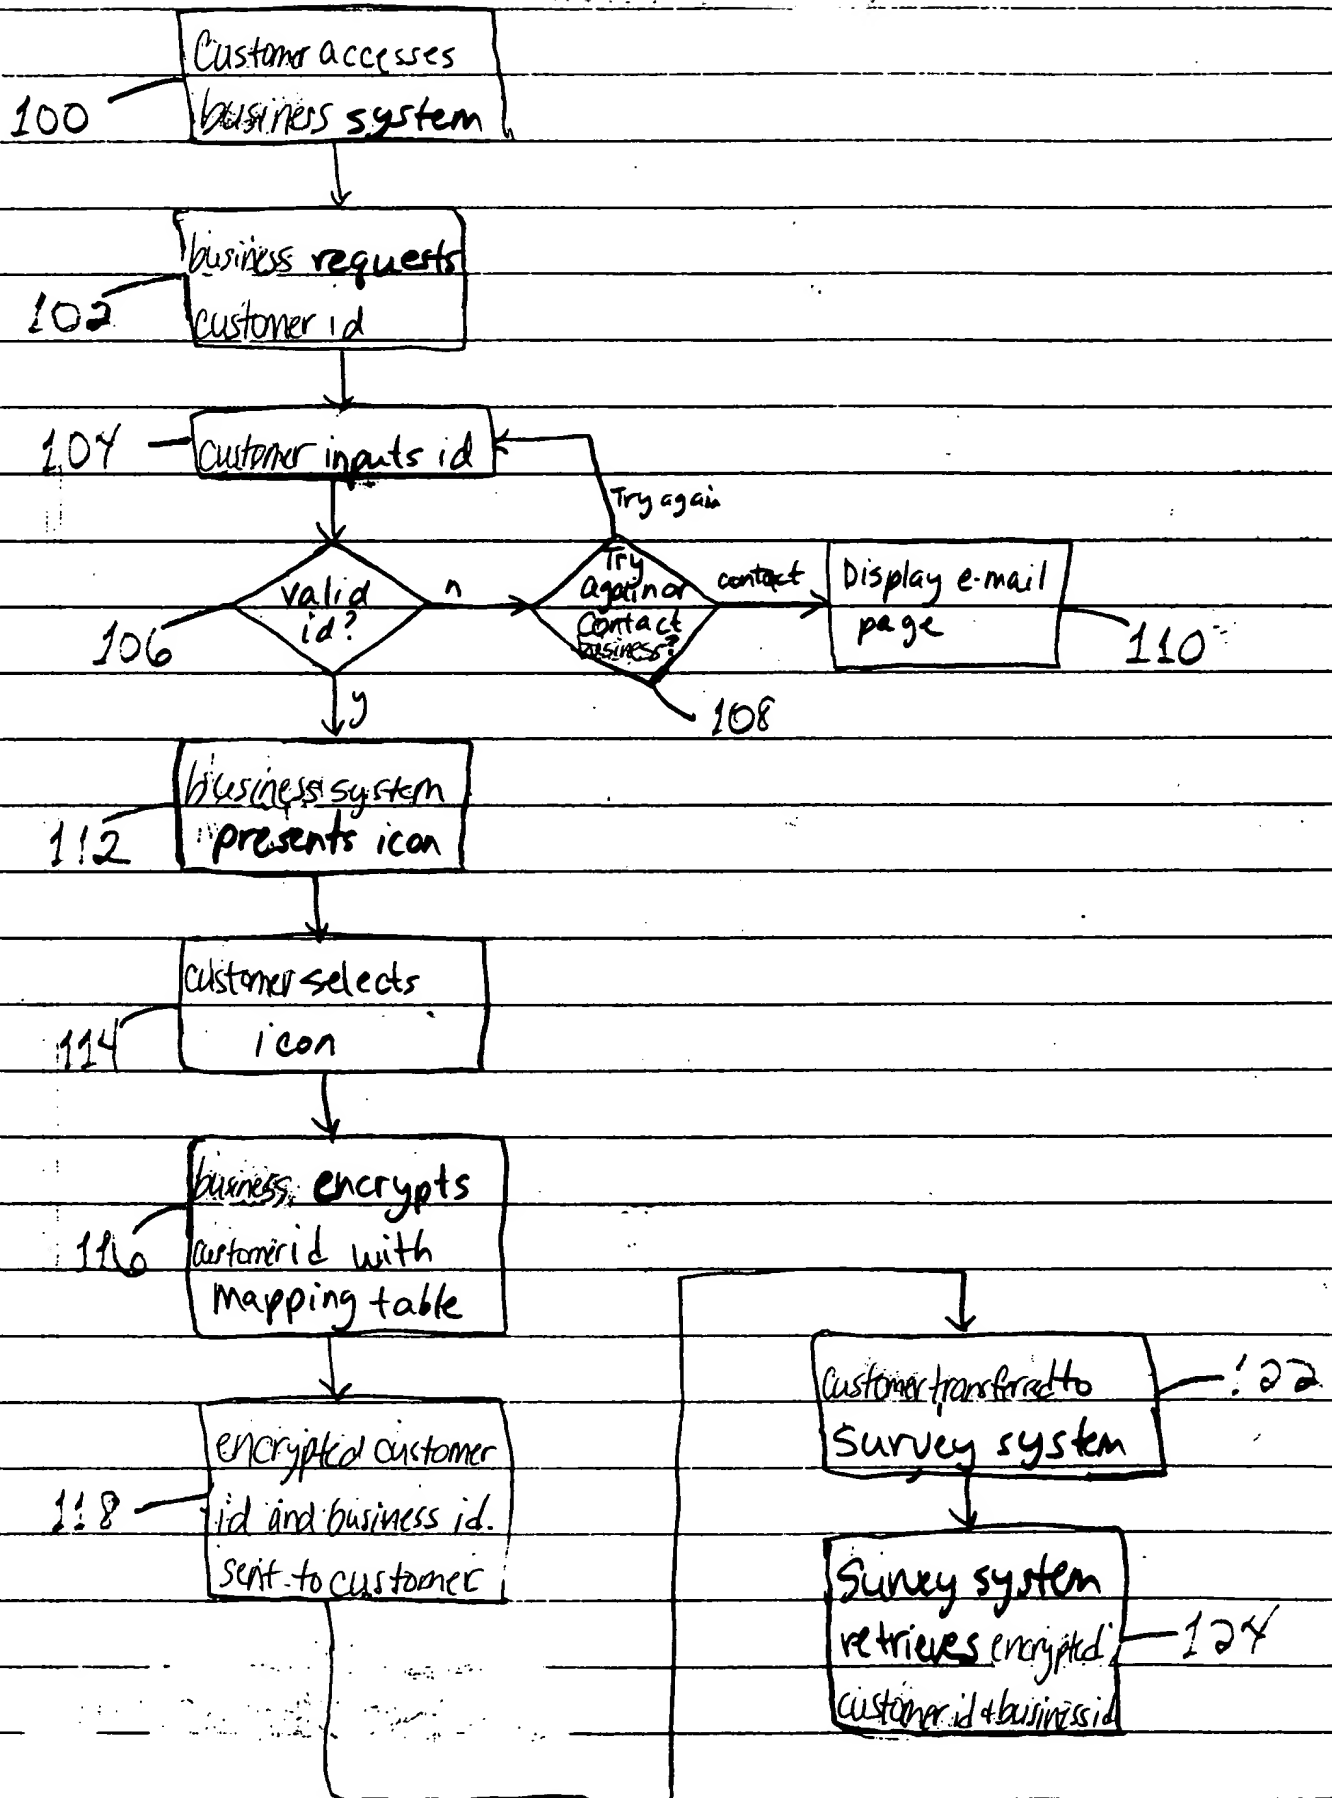 Customer accesses
business system
100
business requests
customer id
102
104
customer inputs id
Try again
valid
id?
n
Try
again or
contact
business?
contact
Display e-mail
page
106
110
y
108
business system
presents icon
112
customer selects
icon
114
business encrypts
customer id with
mapping table
116
encrypted customer
id and business id.
sent to customer
118
customer transferred to
survey system
122
Survey system
retrieves encrypted
customer id & business id
124